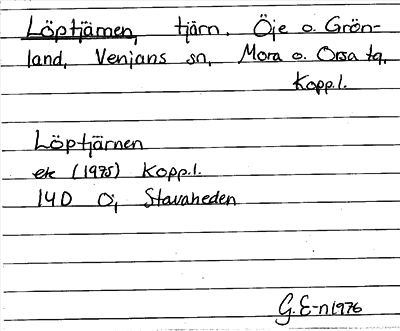 Löptjärnen, tjärn. Öje o. Grön-
land, Venjans sn, Mora o. Orsa tg,
Kopp.l.
Löptjärnen
ek (1975) Kopp.l.
14D 0j Stavaheden
G. E-n 1976